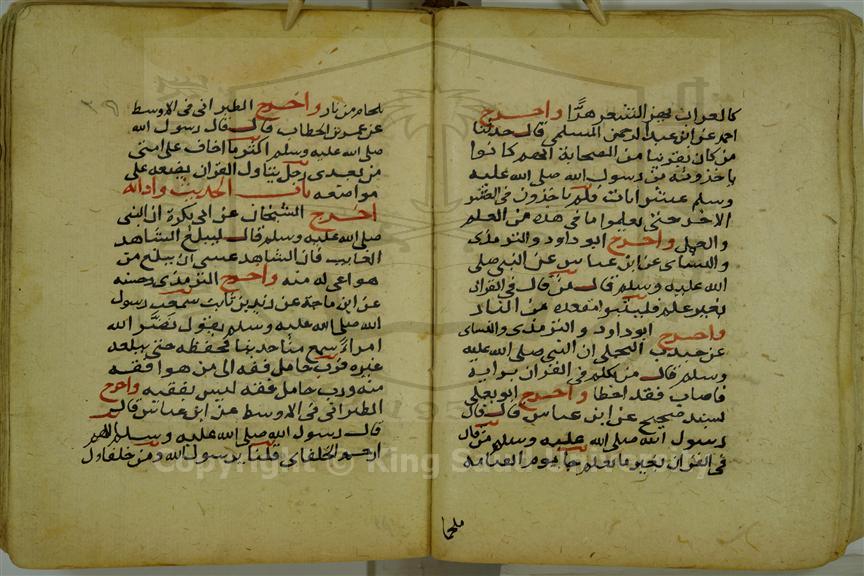 كالعراب يهز الشعر هزا واخرج
احمد عن ابي عبد الرحمن السلمي قال حدثنا
من كان يقرينا من الصحابة انهم كانوا
ياخذون من رسول الله صلى الله عليه
وسلم عشر ايات فلم ياخذون في العشر
الاخر حتى يعلموا ما في هذه من العلم
والعمل واخرج ابو داود والترمذي
والنساي عن ابن عباس عن النبي صلى
الله عليه وسلم قال من قال في القران
بغير علم فليتبوا مقعده من النار
واخرج ابو داود والترمذي والنساي
عن جندب البجلي ان النبي صلى الله عليه
وسلم قال من تكلم في القران برايه
فاصاب فقد اخطا واخرج ابو يعلى
بسند صحيح عن ابن عباس قال قال
رسول الله صلى الله عليه وسلم من قال
في القران بغير ما يعلم جا يوم القيامه
ملجما
ملجما من نار واخرج الطبراني في الاوسط
عن عمر بن الخطاب قال قال رسول الله
صلى الله عليه وسلم اكثر ما اخاف على امتي
من بعدي رجل يتاول القران يضعه على
مواضعه باب الحديث واداله
اخرج الشيخان عن ابي بكرة ان النبي
صلى الله عليه وسلم قال ليبلغ الشاهد
الغايب فان الشاهد عسى ان يبلغ من
هو اعى له منه واخرج الترمذي وحسنه
عن ابن ماجة عن زيد بن ثابت سمعت رسول
الله صلى الله عليه وسلم يقول نضر الله
امراء سمع منا حديثا فحفظه حتى يبلغه
غيره فرب حامل فقه الى من هو افقه
منه ورب حامل فقه ليس بفقيه واخرج
الطبراني في الاوسط عن ابن عباس قال
قال رسول الله صلى الله عليه وسلم اللهم
ارحم الخلفاي قلنا يرسول الله ومن خلفاوك
Copyright © King Saud University